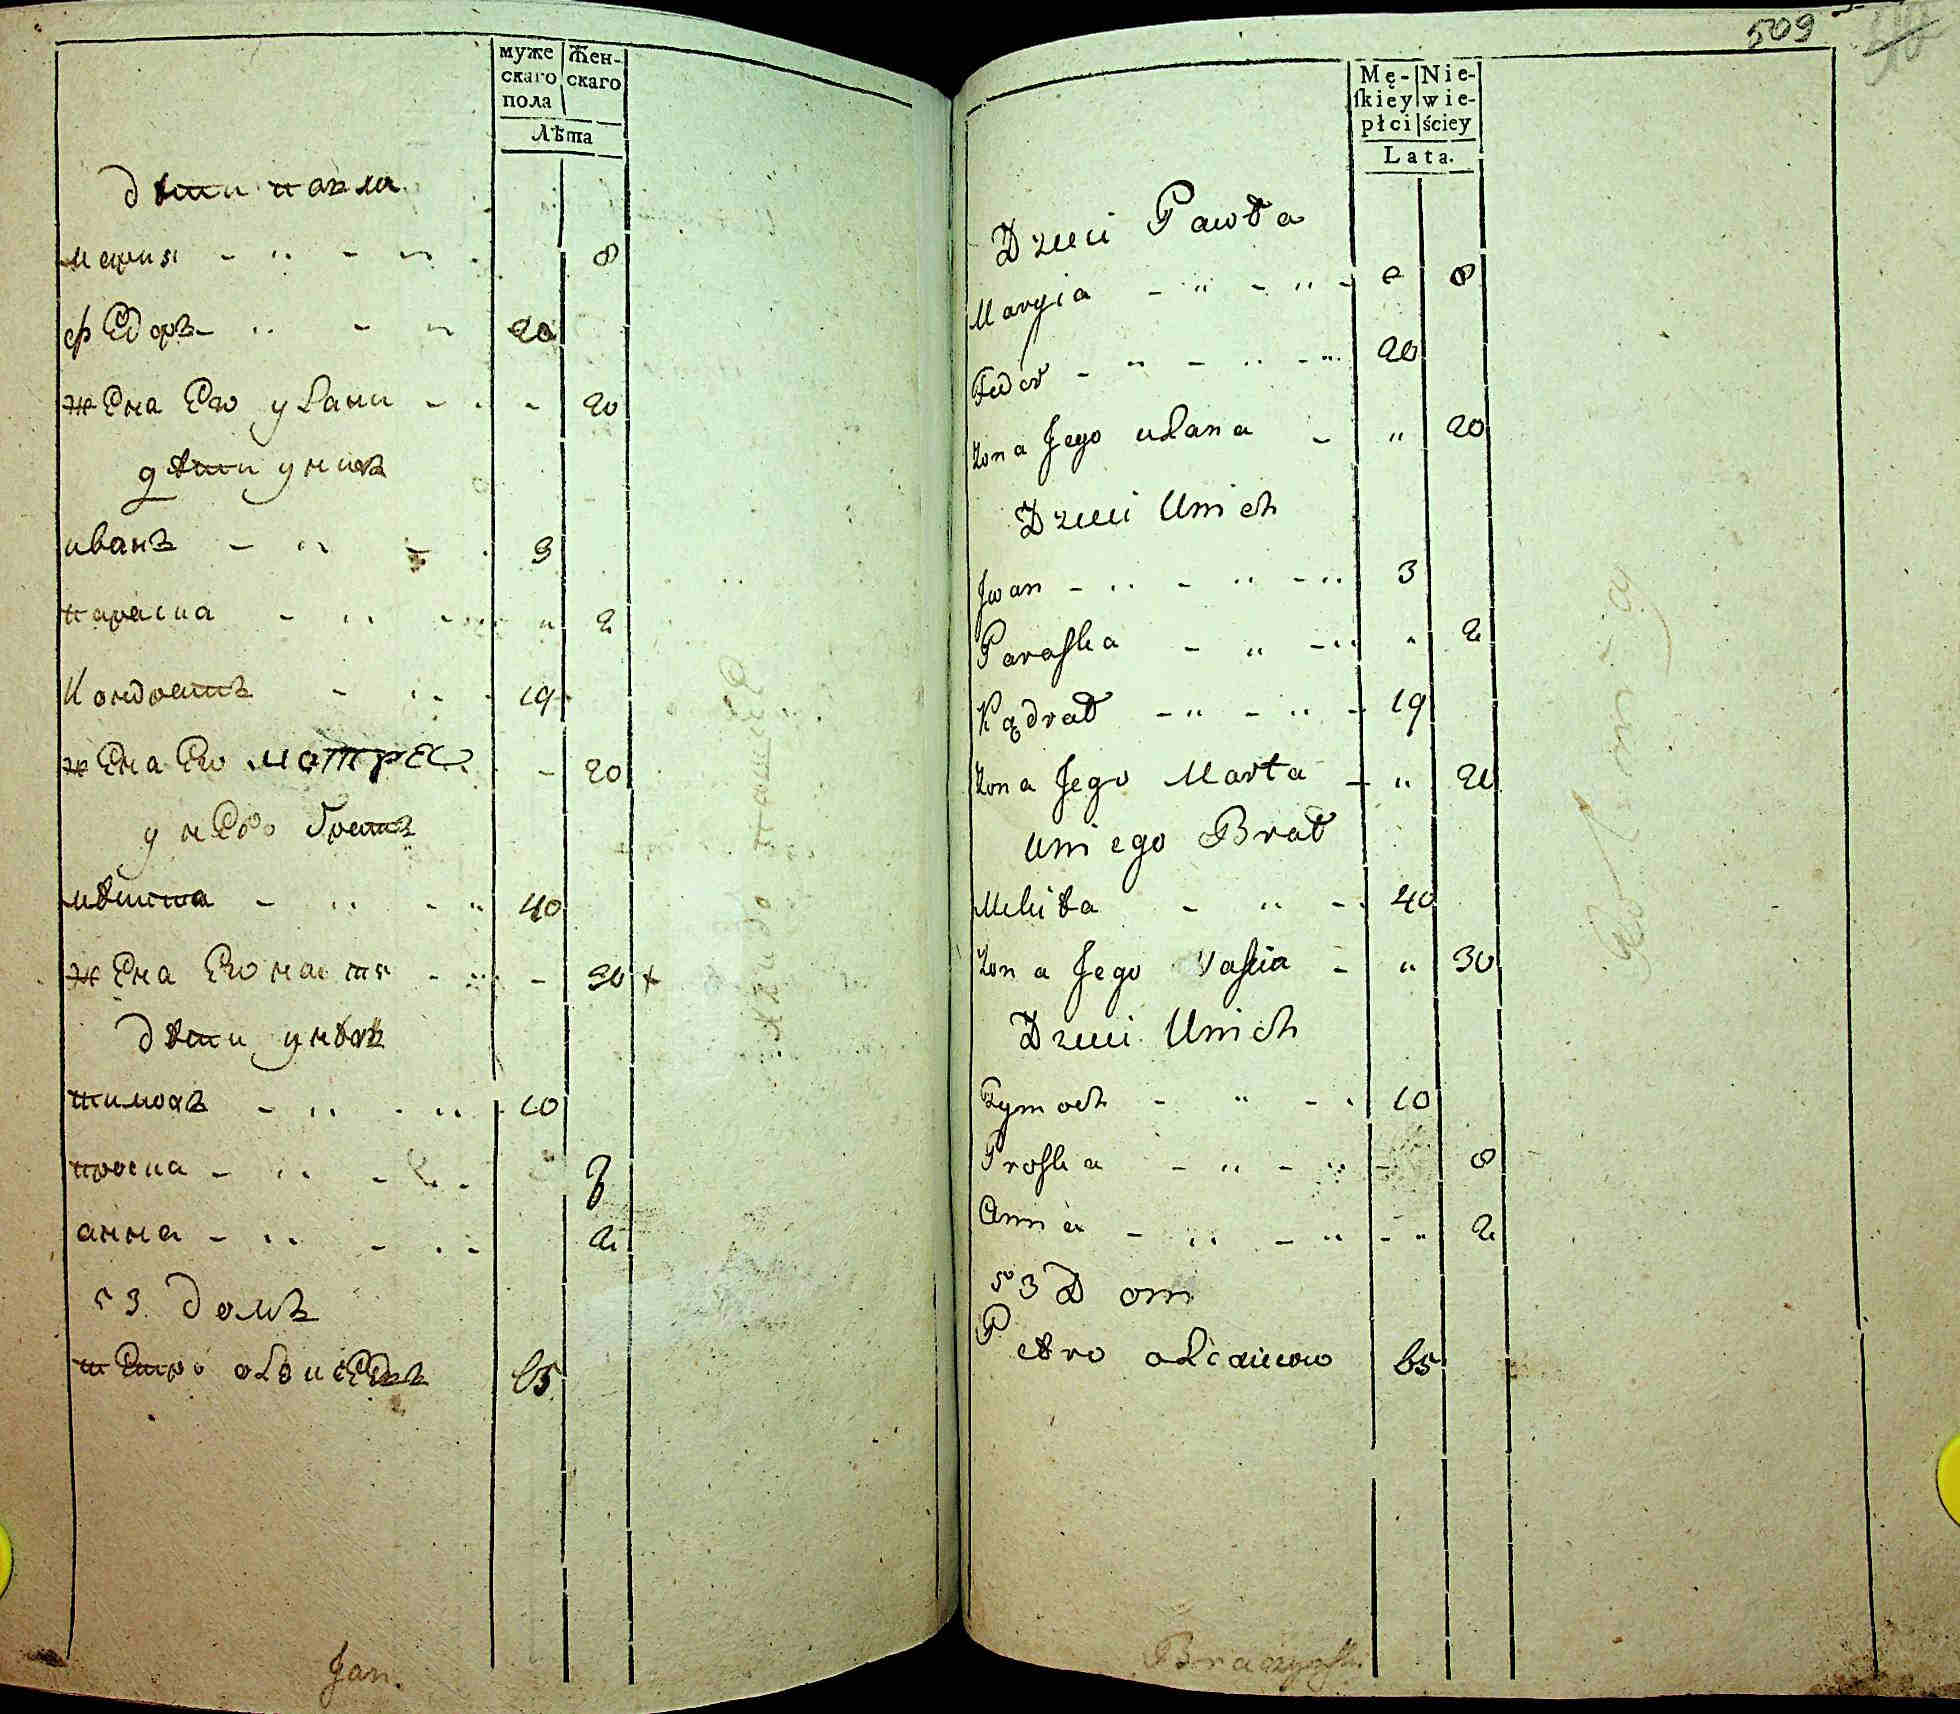 муже Жен-
скаго скаго
пола
Лѣта
дѣти павла
мария - " - " 8
фЕдоръ - " - " 20
жЕна Его улани - - 20
дѣти унихъ
иванъ - " - 3
параска - " - " 2
Кондратъ - " - 19
жЕна Его матрЕ - 20
у нЕго братъ
микита - " - " 40
жЕна Его настя - " - 30 +
дѣти унѣхъ
тимохъ - " - " 10
проска - " - 7
анна - " - " 2
53 домъ
пЕтро 65
Jan.
509
Mę- Nie-
ſkiey wie-
płci ściey
Lata.
Dzieci Pawła
Maryia - " - " - 8
Fedor - " - " - " 20
Zona Jego ulana - " 20
Dzieci Unich
Jwan - " - " - " 3
Paraſka - " - " 2
Kądrat - " - " - 19
Zona Jego Marta - " 20
Uniego Brat
Mikita - " - 40
Zona Jego Naſtia - " 30
Dzieci Unich
Tymoch - " - 10
Proſka - " - " - 8
Anna - " - " - " 2
53 Dom
Petro 65